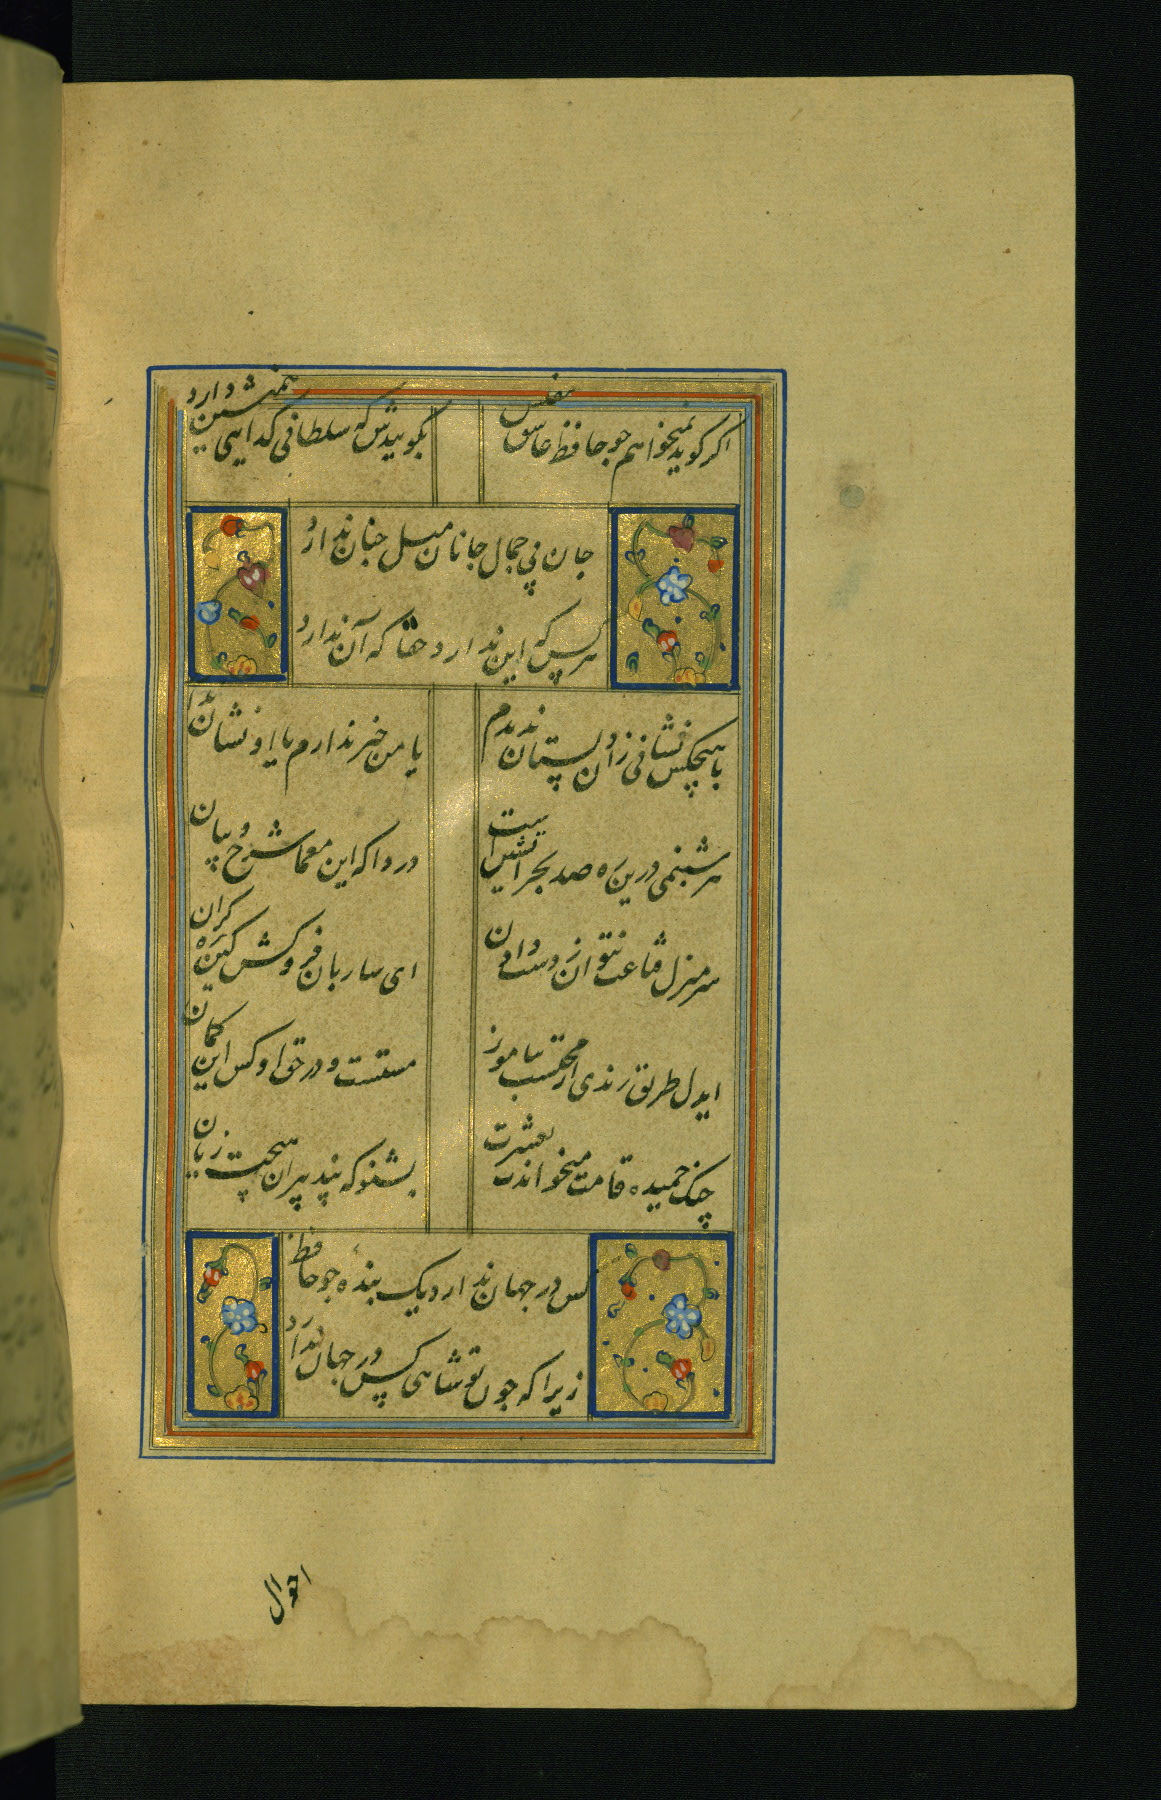 اگر گوید نمیخواهم چو حافظ عاشق مفلس
بگوییدش که سلطانی گدایی همنشین دارد
جان بی جمال جانان میل جنان ندارد
هر کس که این ندارد حقا که آن ندارد
با هیچکس نشانی زان دلستان ندیدم
یا من خبر ندارم یا او نشان ندارد
هر شبنمی درین ره صد بحر آتشین است
دردا که این معما شرح و بیان
سر منزل قناعت نتوان ز دست دادن
ای ساربان فروکش کین ره کران
ایدل طریق رندی از محتسب بیاموز
مستست و در حق او کس این گمان
چنگ خمیده قامت میخواندت بعشرت
بشنو که پند پیران هیچت زیان
کس در جهان ندارد یک بنده چو حافظ
زیرا که چون تو شاهی کس در جهان ندارد
احوال